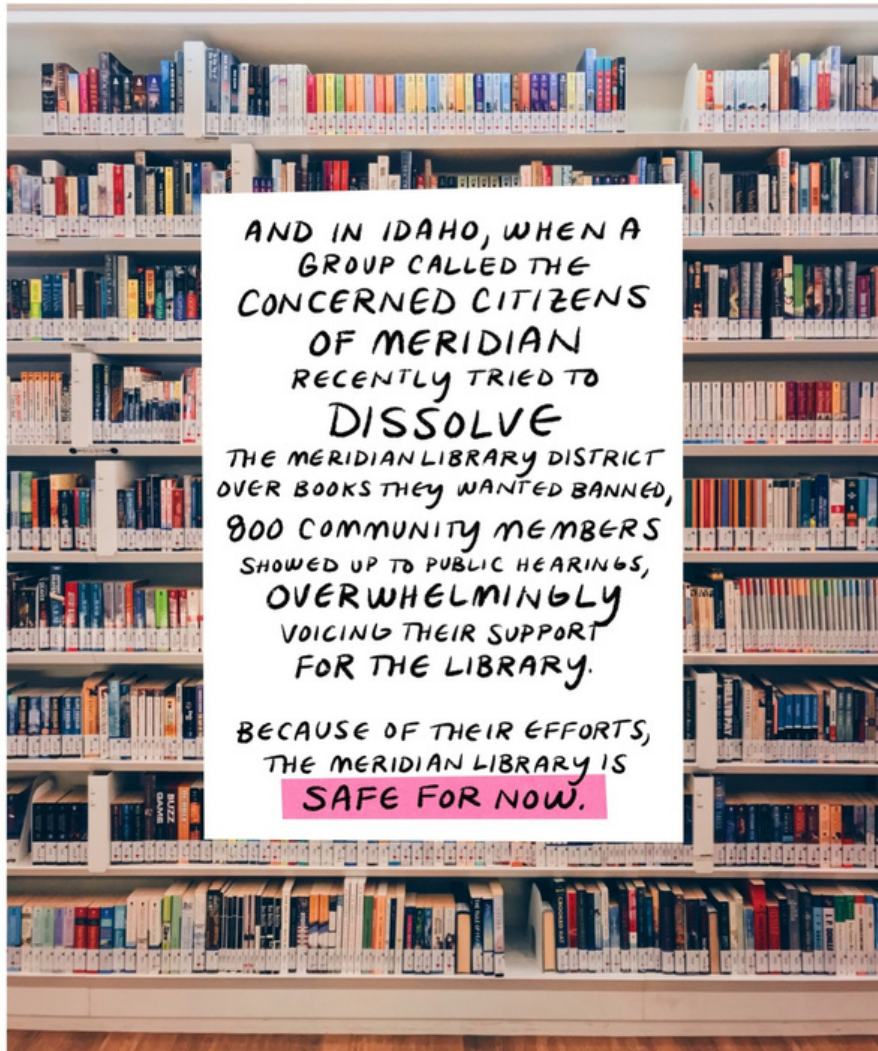 AND IN IDAHO, WHEN A
GROUP CALLED THE
CONCERNED CITIZENS
OF MERIDIAN
RECENTLY TRIED TO
DISSOLVE
THE MERIDIAN LIBRARY DISTRICT
OVER BOOKS THEY WANTED BANNED,
800 COMMUNITY MEMBERS
SHOWED UP TO PUBLIC HEARINGS,
OVERWHELMINGLY
VOICING THEIR SUPPORT
FOR THE LIBRARY.
BECAUSE OF THEIR EFFORTS,
THE MERIDIAN LIBRARY IS
SAFE FOR NOW.
BUZZ
GAME